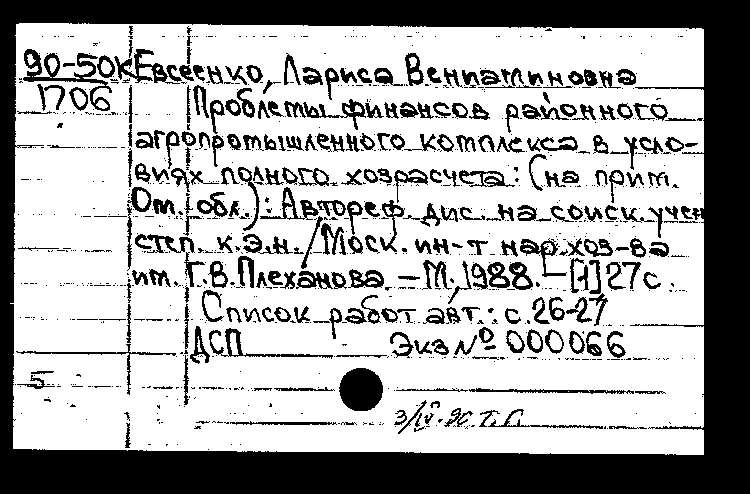 90-50к Евсеенко, Лариса Вениаминовна
1706 Проблемы финансов районного
агропромышленного комплекса в усло-
виях полного хозрасчета: (на прим.
Ом. обл.): Автореф. дис. на соиск. учен
степ. к.э.н. / Моск. ин-т нар. хоз-ва
им. Г.В. Плеханова. — М., 1988. — [1] 27 с.
Список работ авт.: с. 26-27
ДСП Экз № 000066
5
3/IV-90 Т.Г.